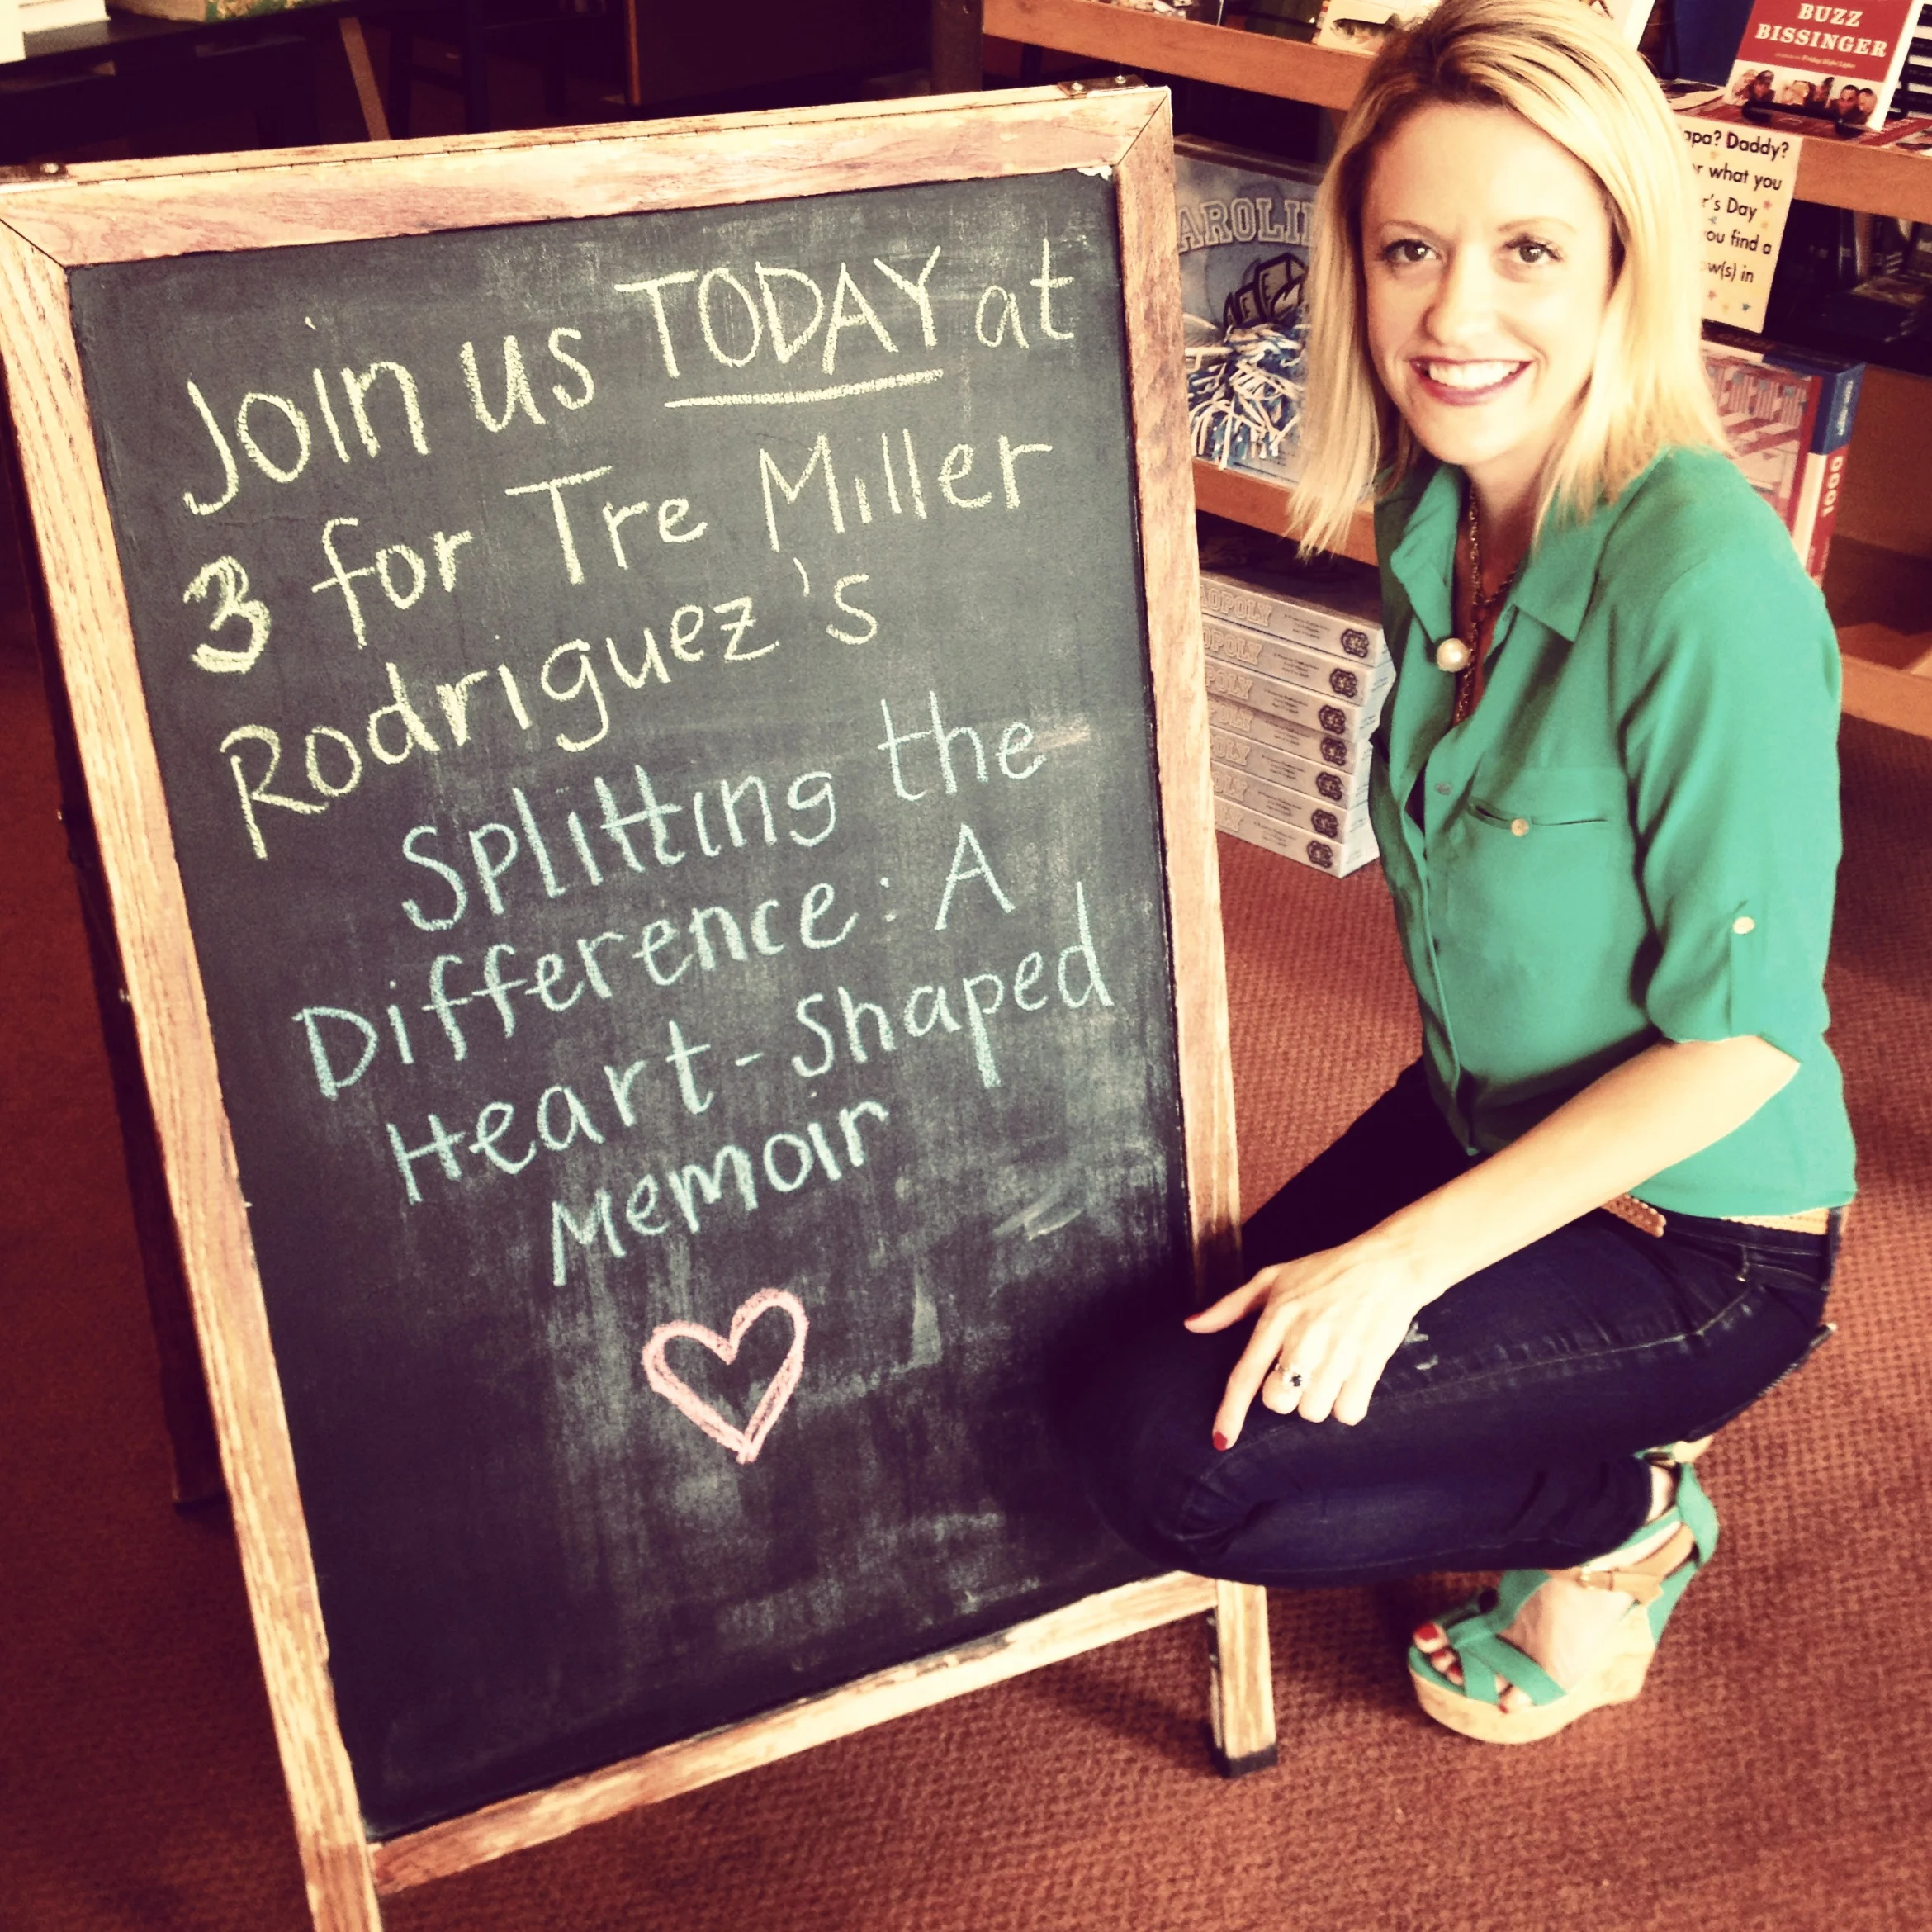 Join us TODAY at
3 for Tre Miller
Rodriguez's
Splitting the
Difference: A
Heart-Shaped
Memoir
BUZZ
BISSINGER
Daddy?
what you
Day
find a
in
1000